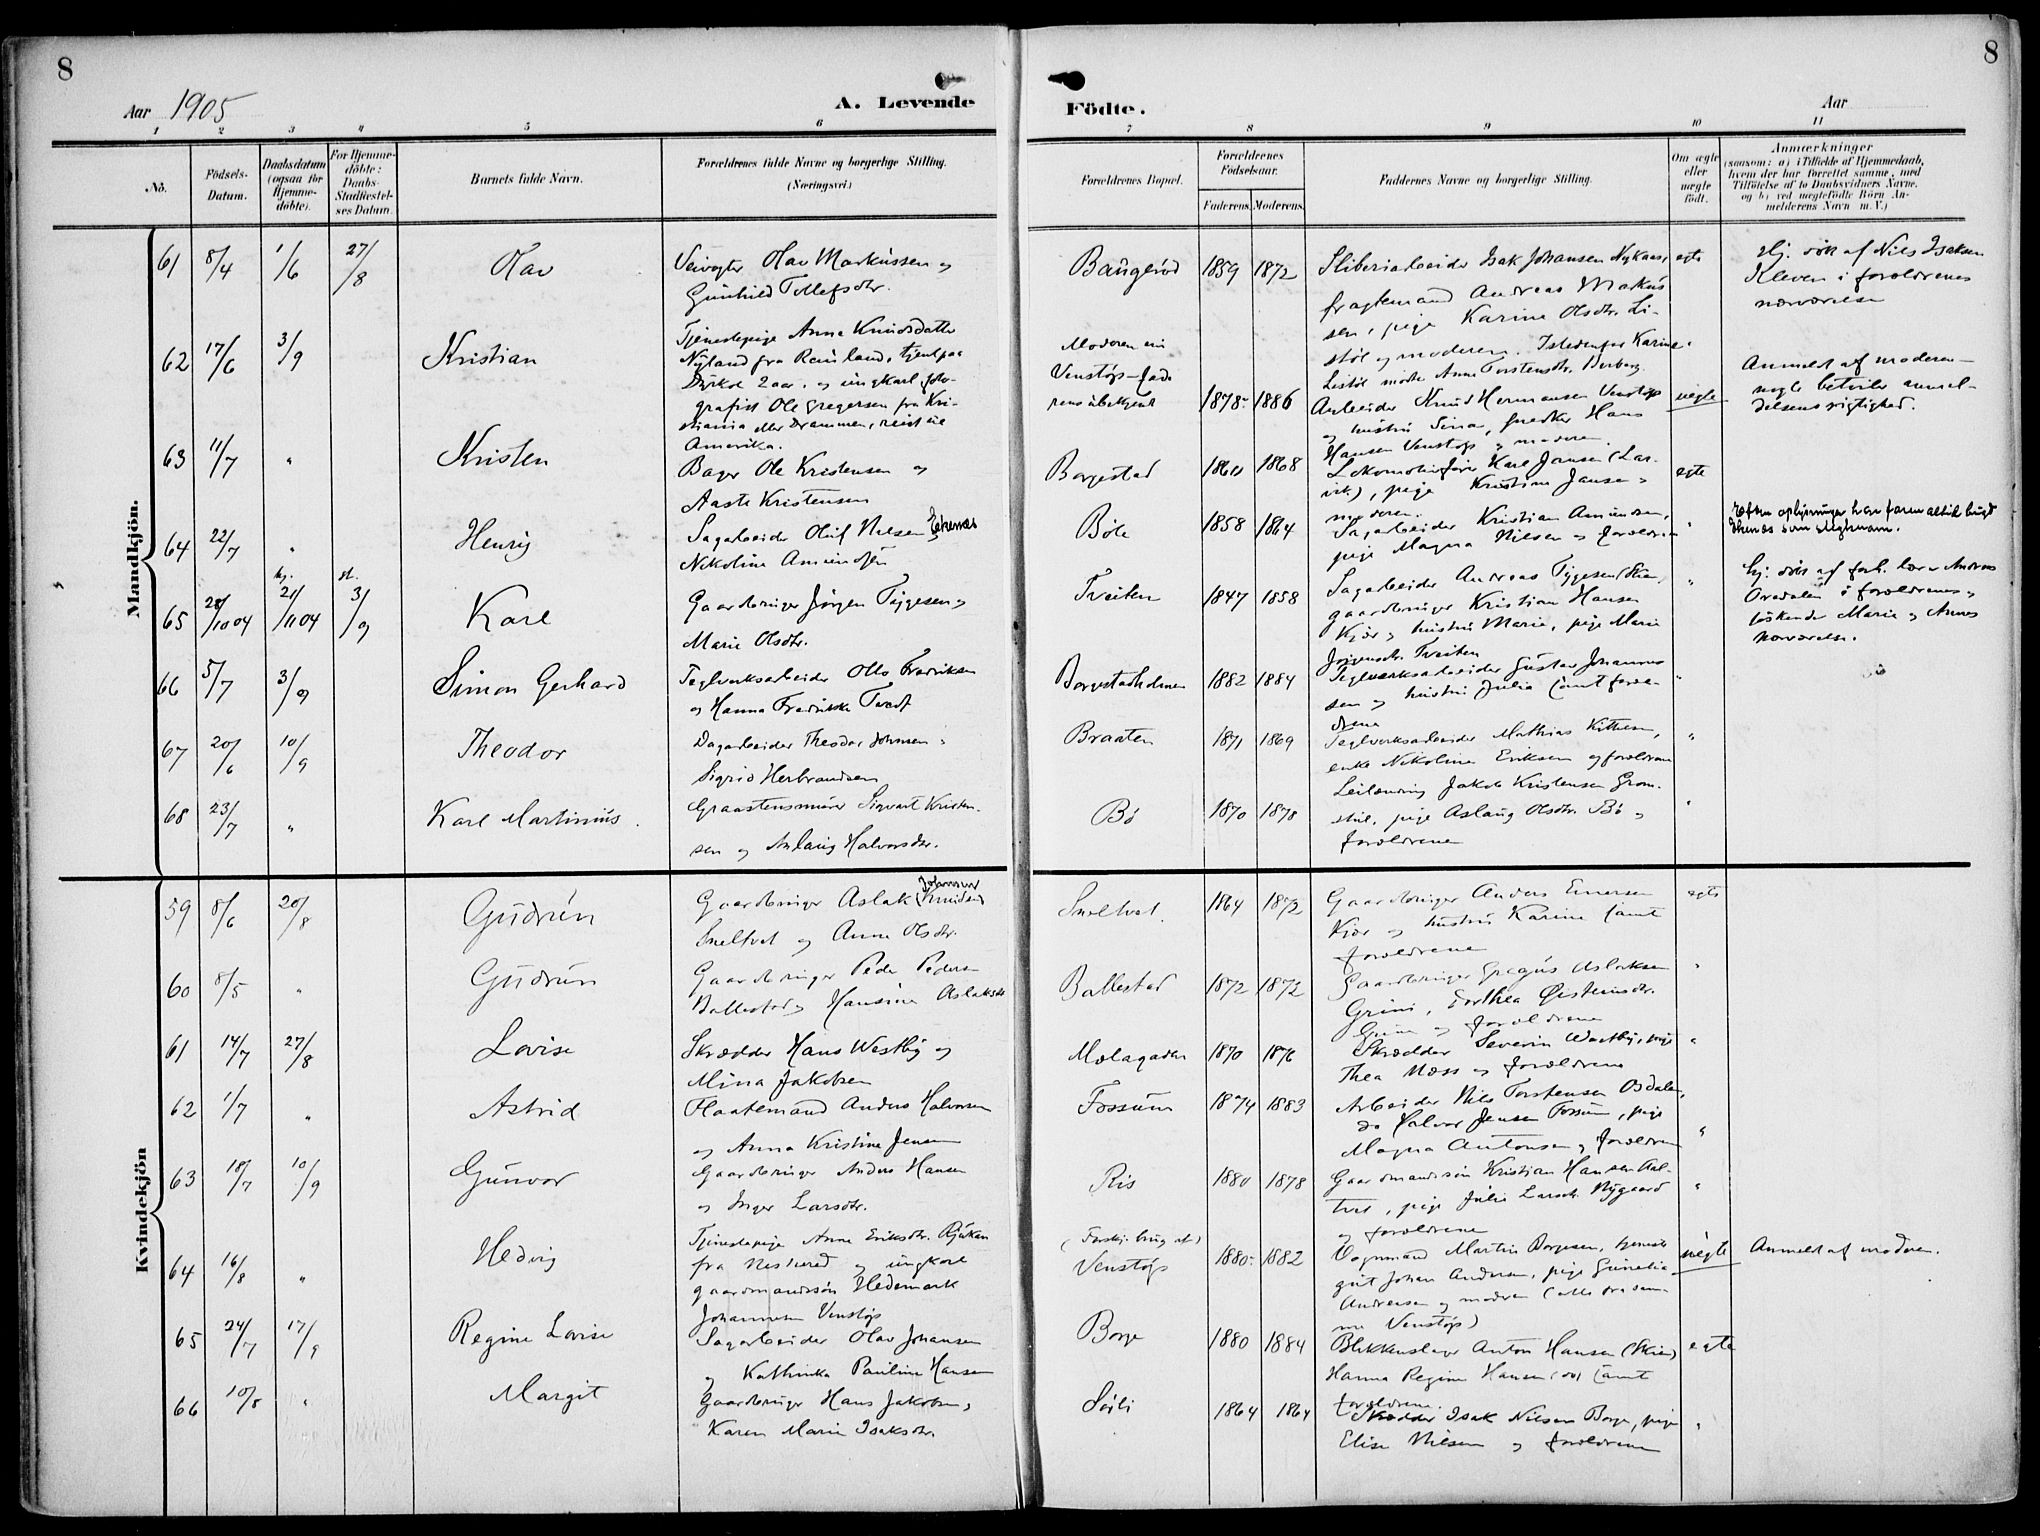 8
8
Aar 1905
A. Levende
Födte.
Aar
1 2 3 4 5 6
7 8 9 10 11
No.
Födsels-
Datum.
Daabsdatum
(ogsaa for
Hjemme-
döbte).
For Hjemme-
döbte:
Daabs-
Stadfæstel-
ses Datum.
Barnets fulde Navn.
Forældrenes fulde Navne og borgerlige Stilling.
(Næringsvei.)
Forældrenes Bopæl.
Forældrenes
Födselsaar.
Faderens. Moderens.
Faddernes Navne og borgerlige Stilling.
Om ægte
eller
uægte
födt.
Anmærkninger
(saasom: a) i Tilfælde af Hjemmedaab,
hvem der har forrettet samme, med
Tilföielse af to Daabsvidners Navne,
og b) ved uægtefödte Börn An-
melderens Navn m. V.)
Mandkjön.
61 8/4 1/6 27/8 Olav
Veivogter Olav Markussen og
Gunhild Tollefsdtr.
Baugerød 1859 1872
Sliberiarbeider Isak Johansen Nykaas,
fragtemand Andreas Markus
sen, pige Karine Olsdtr. Li-
støl og moderen. Istedenfor Karine
Listöl mödte Anne Torstensdtr.
egte
Hj. døbt af Nils Isaksen
Kleven i foreldrenes
nærværelse
62 17/6 3/9 Kristian
Tjenestepige Anne Knudsdatter
Nyland fra Rauland, tjent paa
2 aar. og ungkarl foto-
grafist Ole Gregersen fra Kri-
stiania eller Drammen, reist til
Amerika.
Moderen
Venstøp - fade
rens ubekjent
1878- 1886
Arbeider Knud Hermansen Venstøp
og hustru Sina, snedker Hans
Hansen Venstøp og moderen.
uegte
Anmeldt af moderen -
nogle betviler anmel-
delsens rigtighed.
63 11/7 " Kristen
Bager Ole Kristensen og
Aaste Kristensen
Borgestad 1860 1868
Lokomotivfører Karl Jansen (Lar-
vik), pige Kristine Jansen og
moderen.
egte
64 22/7 " Henrig
Sagarbeider Oluf Nilsen Ekenæs
Nikoline Amundsen
Böle 1858 1864
Sagarbeider Kristian Amundsen,
pige Magna Nilsen og foreldrene
"
Efter oplysninger har faren altid brugt
Ekenæs som slegtnavn.
65 28/10 04 hj. 21/11 04 st. 3/9 Karl
Gaardbruger Jörgen Tyggesen og
Marie Olsdtr.
Tveiten 1847 1858
Sagarbeider Andreas Tyggesen (Skien,
gaardbruger Kristian Hansen
Kjær og hustru Marie, pige Marie
Jörgensdtr. Tveiten
"
hj. döbt af forh. lærer Andreas
i foreldrenes og
söskende Marie og Annes
nærværelse.
66 5/7 3/9 Simon Gerhard
Teglverksarbeider Olls Fredriksen
og Hanna Fredrikke Tvedt
Borgestadholmen 1882 1884
Teglverksarbeider Gustav Johannes
sen og hustru Julia samt forel-
drene
"
67 20/6 10/9 Theodor
Dagarbeider Theodor Johnsen og
Sigrid Herbrandsen
Braaten 1871 1869
Teglverksarbeider Mathias Kittelsen,
enke Nikoline Eriksen og foreldrene
"
68 23/7 " Karl Martinius
Graastensmurer Sigvart Kristen-
sen og Aslaug Halvorsdtr.
Bö 1870 1878
Leilending Jakob Kristensen Grom-
stul, pige Aslaug Olsdtr. Bö og
foreldrene
"
Kvindekjön
59 8/6 20/8 Gudrun
Gaardbruger Aslak Johansen (Knudsen)
Sneltvet og Anne Olsdtr.
Sneltvet. 1864 1872
Gaardbruger Anders Einersen
Kjær og hustru Karine samt
foreldrene
egte
60 8/5 " Gudrun
Gaardbruger Peder Pedersen
Ballestad og Hansine Aslaksdtr
Ballestad 1872 1872
Gaardbruger Gregus Aslaksen
Grini, Dorthea Øisteinsdtr.
Grini og foreldrene
"
61 14/7 27/8 Lovise
Skrædder Hans Westby og
Mina Jakobsen
Mælagaden 1870 1876
Skrædder Severin Westby, pige
Thea Næss og foreldrene
"
62 1/7 " Astrid
Flaatemand Anders Halvorsen
og Anna Kristine Jensen
Fossum 1874 1883
Arbeider Nils Torstensen Osdalen,
do Halvor Jensen Fossum, pige
Magna Antonsen og foreldrene
"
63 18/7 10/9 Gunvor
Gaardbruger Anders Hansen
og Inger Larsdtr.
Ris 1880 1878
Gaardmandssön Kristian Hansen Aal-
tvet, pige Julie Larsdtr. Nygaard
og foreldrene
"
64 16/8 " Hedvig
Tjenestepige Anne Eriksdtr. Rjukan
fra Nesherred og ungkarl
gaardmandssön Hedemark
Johannesen Venstøp
(Forskj. brug af)
Venstøp
1880- 1882
Vognmand Martin Borgesen, tjeneste
gut Johan Andersen, pige Gunelia
Andreasen og moderen (alle fra sam-
me Venstøp)
uegte
Anmeldt af moderen.
65 24/7 17/9 Regine Lovise
Sagarbeider Olav Johansen
og Kathinka Pauline Hansen
Borge 1880 1884
Blikkenslager Anton Hansen (Skien)
Hanna Regine Hansen (do) samt
foreldrene.
egte
66 10/8 " Margit
Gaardbruger Hans Jakobsen og
Karen Marie Isaksdtr.
Søili 1864 1864
Skrædder Isak Nilsen Borge, pige
Elise Nilsen og foreldrene
"